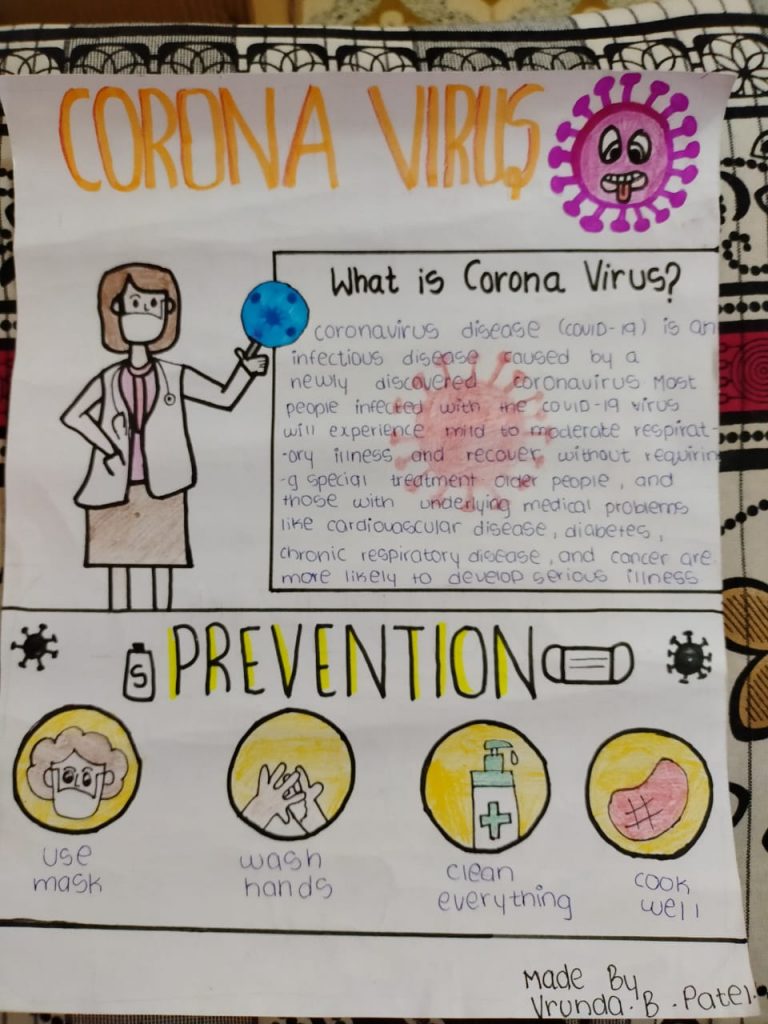 CORONA VIRUS
What is Corona Virus?
coronavirus disease (COVID-19) is an
infectious disease caused by a
newly discovered coronavirus Most
people infected with the COVID-19 virus
will experience mild to moderate respirat-
-ory illness and recover without requirin
-g special treatment older people, and
those with underlying medical problems
like cardiovascular disease, diabetes,
chronic respiratory disease, and cancer are
more likely to develop serious illness
S
PREVENTION
use
mask
wash
hands
clean
everything
cook
well
Made By
Vrunda. B. Patel.